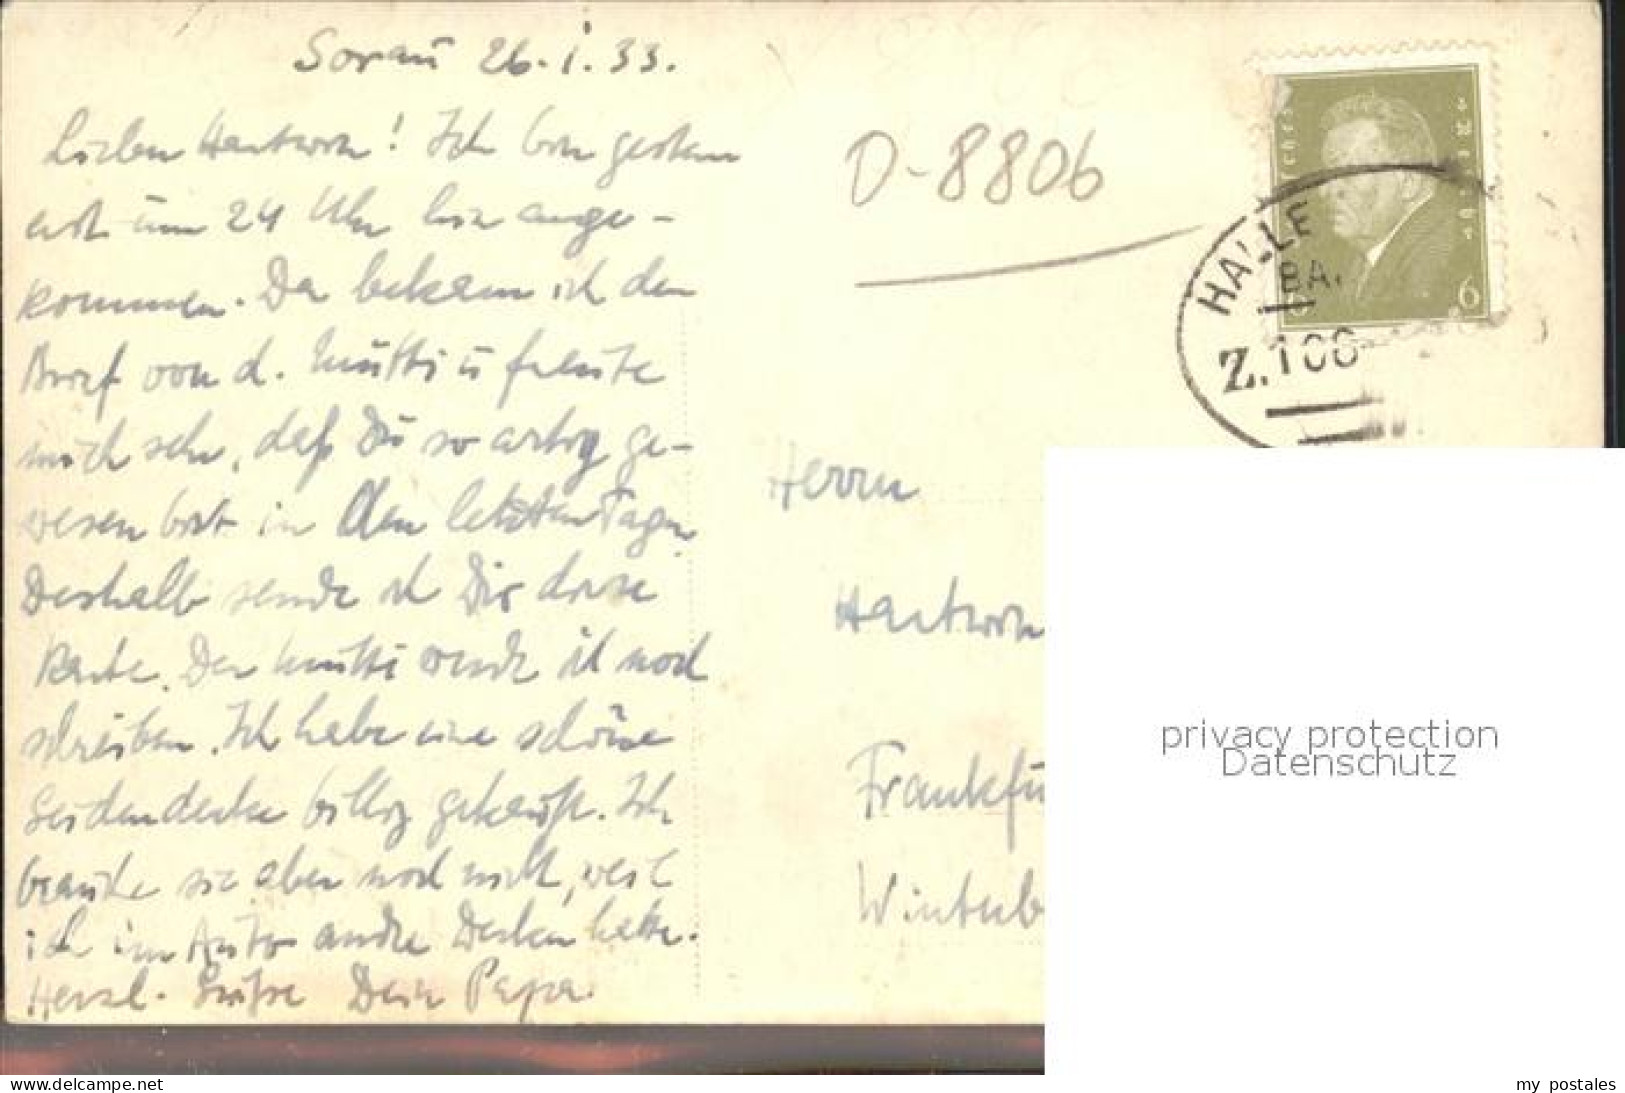 Sorau 26.1.33.
Lieber Hartwin! Ich bin gestern
erst um 24 Uhr hier ange-
kommen. Da bekam ich den
Brief von d. Mutti u freute
mich sehr, daß Du so artig ge-
wesen bist in den letzten Tagen.
Deshalb sende ich Dir diese
Karte. Der Mutti werde ich noch
schreiben. Ich habe eine schöne
Seidendecke billig gekauft. Ich
brauche sie aber noch nicht, weil
ich im Auto andre Decken hatte.
Herzl. Grüße Dein Papa.
D-8806
Deutsches Reich
6
HALLE
BA.
Z.100
Herrn
Hartwin
Frankfu
Winterb
privacy protection
Datenschutz
www.delcampe.net
my_postales